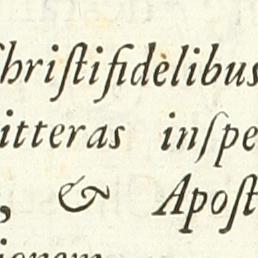 Chriſtifidelibus
itteras inſpe
, & Apoſt
ionem